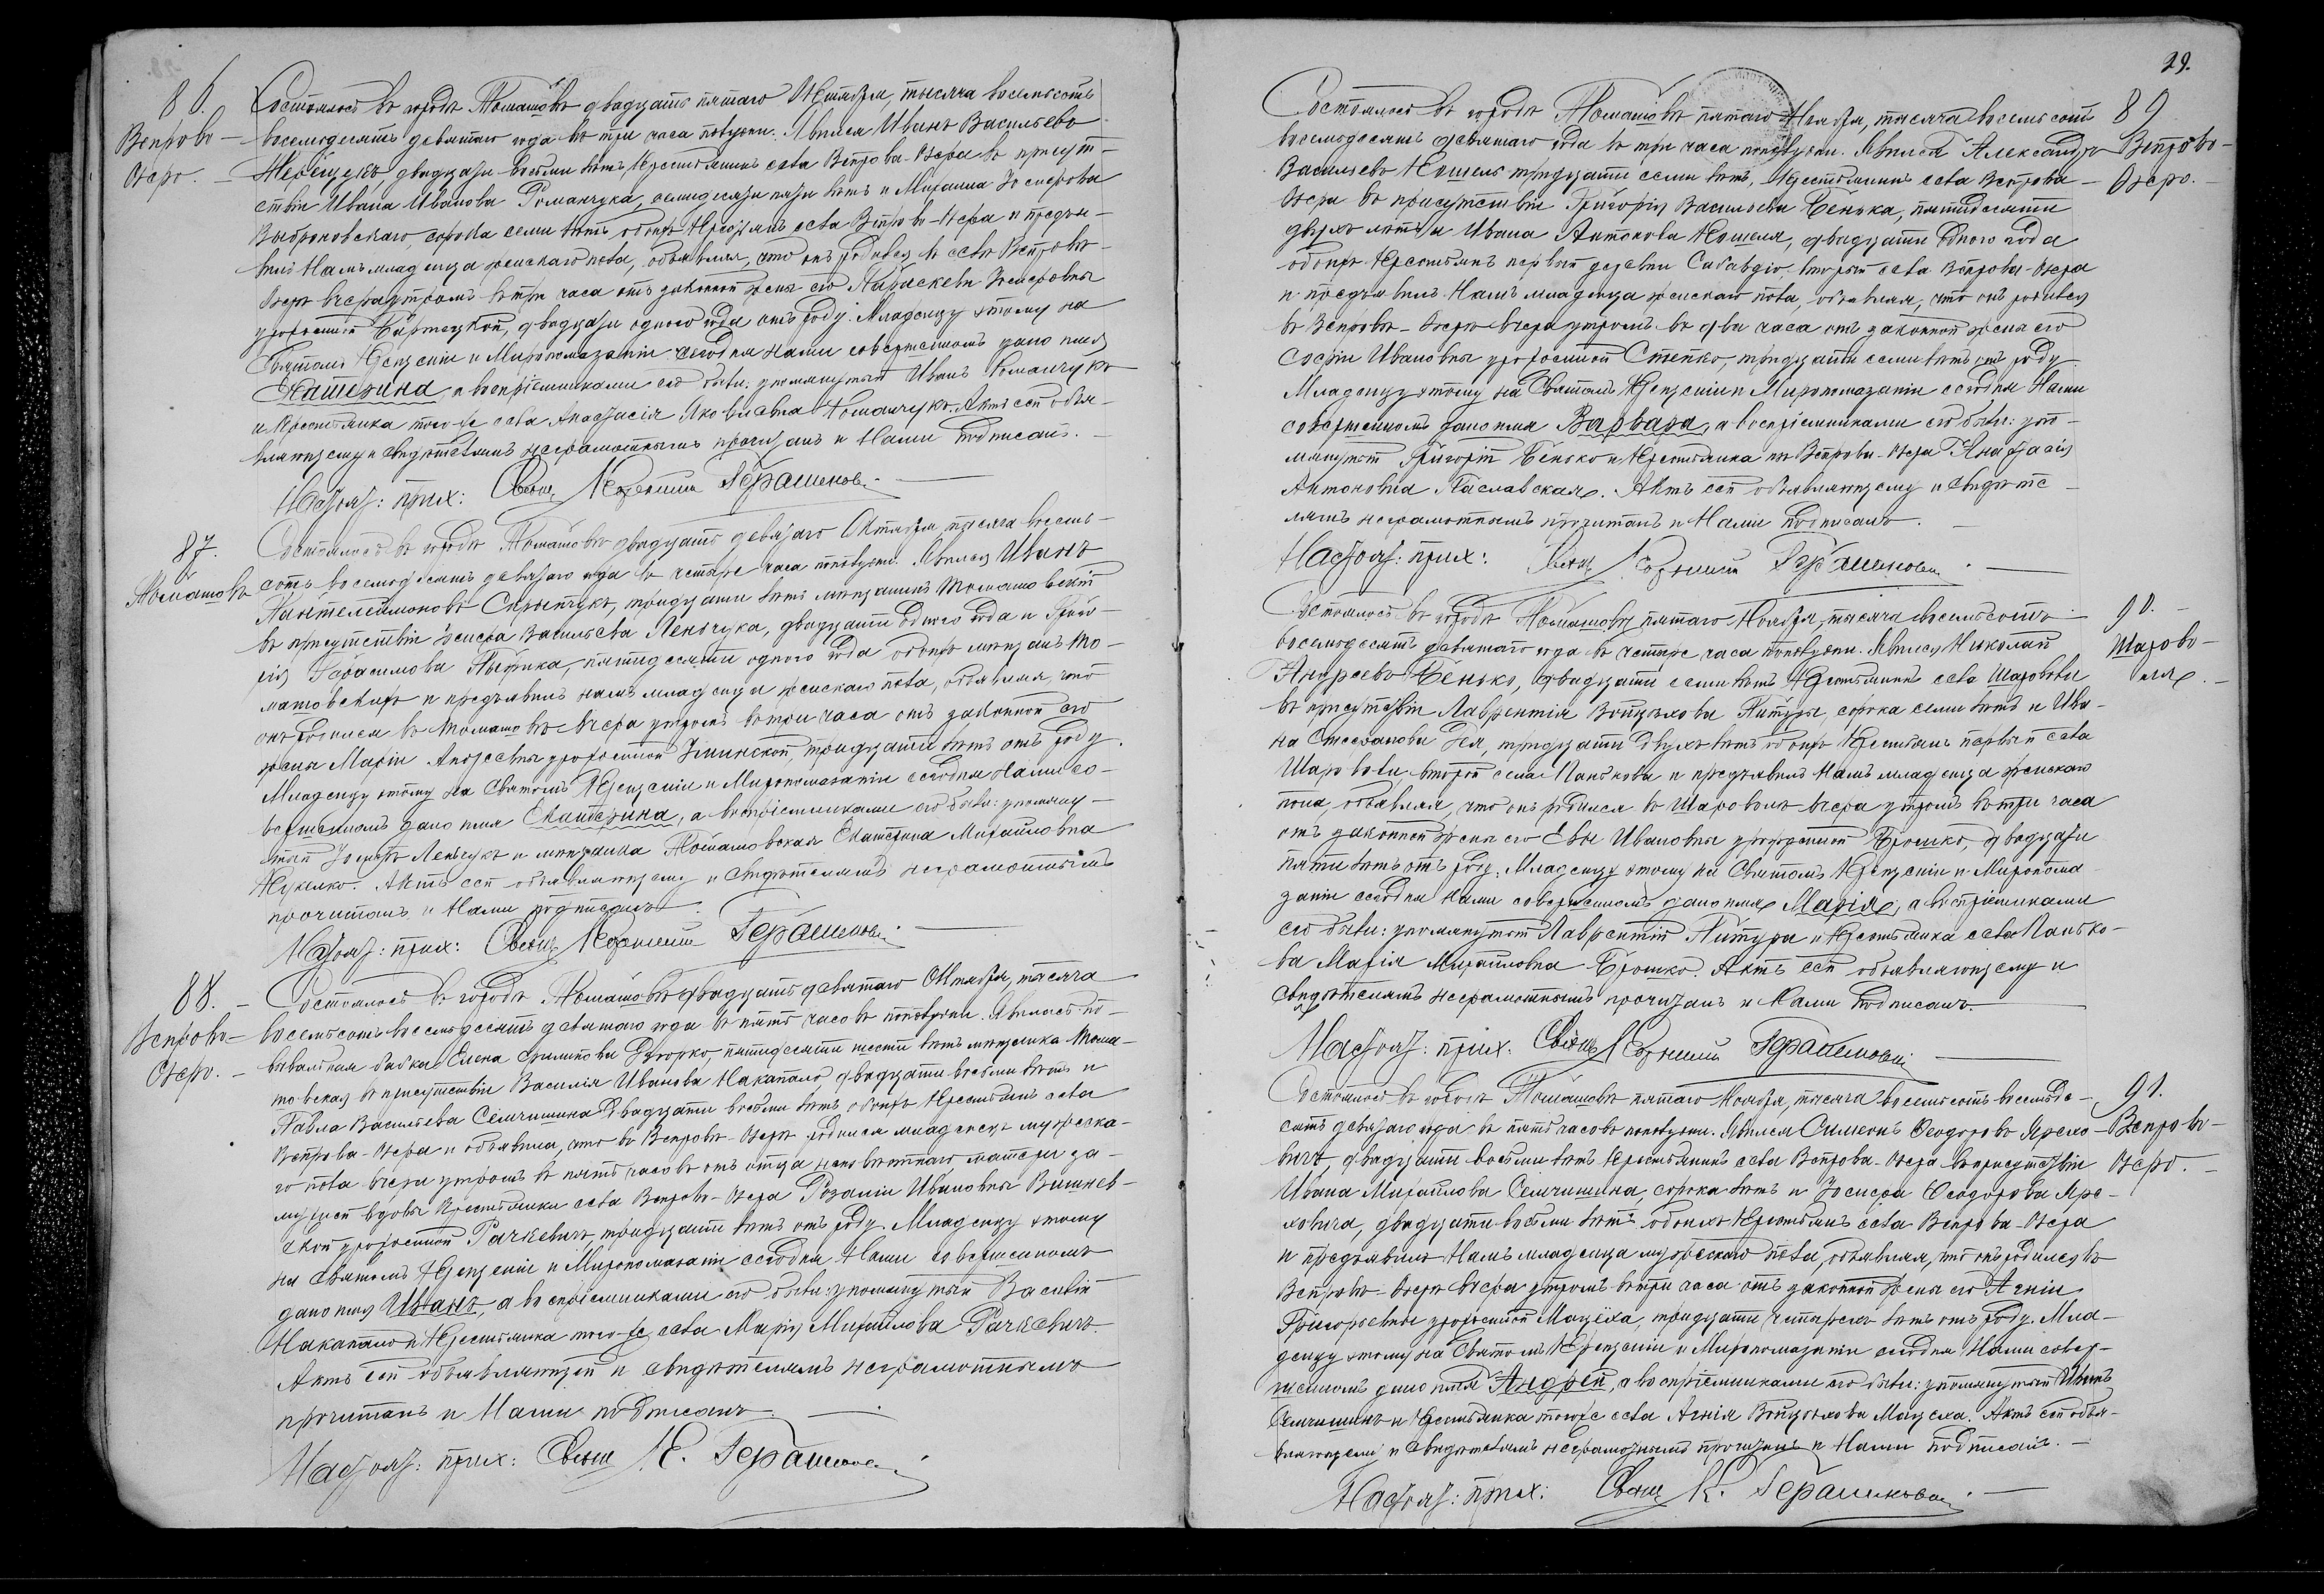 86.
Вепрово-
Озеро.
Состоялось въ городѣ Томашовѣ двадцать пятаго Октября, тысяча восемьсотъ
восемьдесятъ девятаго года въ три часа пополудни. Явился Иванъ Васильевъ
двадцати восьми лѣтъ крестьянинъ села Вепрова-Озера въ присут-
ствіи Ивана Иванова Романчука, семидесяти пяти лѣтъ и Михаила Іосифова
сорока семи лѣтъ обоихъ крестьянъ села Вепрова-Озера и предъя-
вилъ Намъ младенца женскаго пола, объявляя, что онъ родился въ селѣ Вепровѣ-
Озерѣ вчера утромъ въ три часа отъ законной жены его Параскевы Іосифовны
урожденной двадцати одного года отъ роду. Младенцу этому на
Святомъ Крещеніи и Миропомазаніи сегодня Нами совершенномъ дано имя
Катерина, а воспріемниками его были: упомянутый Иванъ Романчукъ
и крестьянка того-же села Анастасія Яковлевна Романчукъ. Актъ сей объя-
вляющему и свидѣтелямъ неграмотнымъ прочитанъ и Нами подписанъ.
Настоят: прих: Свящ. Корнилій Герашенов
87.
Томашовъ
Состоялось въ городѣ Томашовѣ двадцать девятаго Октября, тысяча восемь-
сотъ восемьдесятъ девятаго года въ четыре часа пополудни. Явился Иванъ
Пантелеймоновъ Скрыпчукъ, тридцати лѣтъ мѣщанинъ Томашовскій
въ присутствіи Іосифа Васильева Леньчука, двадцати одного года и Григо-
рія Герасимова пятидесяти одного года обоихъ мѣщанъ То-
машовскихъ и предъявилъ намъ младенца женскаго пола, объявляя, что
онъ родился въ Томашовѣ вчера утромъ въ три часа отъ законной его
жены Маріи Андреевны урожденной тридцати лѣтъ отъ роду.
Младенцу этому на Святомъ Крещеніи и Миропомазаніи сегодня Нами со-
вершенномъ дано имя Екатерина, а воспріемниками его были: упомяну-
тый Іосифъ Леньчукъ и мѣщанка Томашовская Екатерина Михайловна
Актъ сей объявляющему и свидѣтелямъ неграмотнымъ
прочитанъ и Нами подписанъ.
Настоят: прих: Свящ. Корнилій Герашенов
88.
Вепрово-
Озеро.
Состоялось въ городѣ Томашовѣ двадцать девятаго Октября, тысяча
восемьсотъ восемьдесятъ девятаго года въ пять часовъ пополудни. Явилась по-
вивальная бабка Елена пятидесяти шести лѣтъ мѣщанка Тома-
шовская въ присутствіи Василія Иванова Накапало, двадцати восьми лѣтъ и
Павла Васильева Семчишина двадцати восьми лѣтъ обоихъ крестьянъ села
Вепрова-Озера и объявила, что въ Вепровѣ-Озерѣ родился младенецъ мужеска-
го пола вчера утромъ въ пять часовъ отъ отца неизвѣстнаго, матери за-
мужней вдовы крестьянки села Вепрова-Озера Розаліи Ивановны Вишнев-
ской урожденной Рачкевичъ, тридцати лѣтъ отъ роду. Младенцу этому
на Святомъ Крещеніи и Миропомазаніи сегодня Нами совершенномъ
дано имя Иванъ, а воспріемниками его были: упомянутый Василій
Накапало и крестьянка того-же села Марія Михайлова Рачкевичъ.
Актъ сей объявляющей и свидѣтелямъ неграмотнымъ
прочитанъ и Нами подписанъ.
Настоят: прих: Свящ. К. Герашенов
29.
89
Вепрово-
Озеро.
Состоялось въ городѣ Томашовѣ пятаго Ноября, тысяча восемьсотъ
восемьдесятъ девятаго года въ три часа пополудни. Явился Александръ
Васильевъ Кошель тридцати семи лѣтъ, крестьянинъ села Вепрова-
Озера въ присутствіи Григорія Васильева Бенька, пятидесяти
двухъ лѣтъ и Ивана Антонова Кошеля, двадцати одного года
обоихъ крестьянъ первый деревни второй села Вепрова-Озера
и предъявилъ Намъ младенца женскаго пола, объявляя, что онъ родился
въ Вепровѣ-Озерѣ вчера утромъ въ два часа отъ законной жены его
Софіи Ивановны урожденной Степко, тридцати семи лѣтъ отъ роду.
Младенцу этому на Святомъ Крещеніи и Миропомазаніи сегодня Нами
совершенномъ дано имя Варвара, а воспріемниками его были: упо-
мянутый Григорій Бенько и крестьянка изъ Вепрова-Озера Анастасія
Антоновна Паславская. Актъ сей объявляющему и свидѣте-
лямъ неграмотнымъ прочитанъ и Нами подписанъ.
Настоят: прих: Свящ. Корнилій Герашенов
90.
Шарово-
ля.
Состоялось въ городѣ Томашовѣ пятаго Ноября, тысяча восемьсотъ
восемьдесятъ девятаго года въ четыре часа пополудни. Явился Николай
Андреевъ Бенько, двадцати семи лѣтъ крестьянинъ села Шароволи
въ присутствіи Лаврентія Войцѣхова Питуры, сорока семи лѣтъ и Ива-
на Стефанова тридцати двухъ лѣтъ обоихъ крестьянъ первый села
Шароволи, второй села Панькова и предъявилъ Намъ младенца женскаго
пола, объявляя, что онъ родился въ Шароволѣ вчера утромъ въ три часа
отъ законной жены его Евы Ивановны урожденной Брошко, двадцати
пяти лѣтъ отъ роду. Младенцу этому на Святомъ Крещеніи и Миропома-
заніи сегодня Нами совершенномъ дано имя Марія, а воспріемниками
его были: упомянутый Лаврентій Питура и крестьянка села Панько-
ва Марія Михайловна Брошко. Актъ сей объявляющему и
свидѣтелямъ неграмотнымъ прочитанъ и Нами подписанъ.
Настоят: прих: Свящ. Корнилій Герашенов
91.
Вепрово-
Озеро.
Состоялось въ городѣ Томашовѣ пятаго Ноября, тысяча восемьсотъ восемьде-
сятъ девятаго года въ пять часовъ пополудни. Явился Симеонъ Ѳеодоровъ Ярехо-
вичъ, двадцати восьми лѣтъ крестьянинъ села Вепрова-Озера въ присутствіи
Ивана Михайлова Семчишина, сорока лѣтъ и Іосифа Ѳеодорова Яре-
ховича, двадцати восьми лѣтъ, обоихъ крестьянъ села Вепрова-Озера
и предъявилъ Намъ младенца мужескаго пола, объявляя, что онъ родился въ
Вепровѣ-Озерѣ вчера утромъ въ три часа отъ законной жены его Агніи
Григорьевны урожденной Мацѣха, тридцати четырехъ лѣтъ отъ роду. Мла-
денцу этому на Святомъ Крещеніи и Миропомазаніи сегодня Нами совер-
шенномъ дано имя Андрей, а воспріемниками его были: упомянутый Иванъ
Семчишинъ и крестьянка того-же села Агнія Войцѣхова Мацеха. Актъ сей объя-
вляющему и свидѣтелямъ неграмотнымъ прочитанъ и Нами подписанъ.
Настоят: прих: Свящ. К. Герашенов